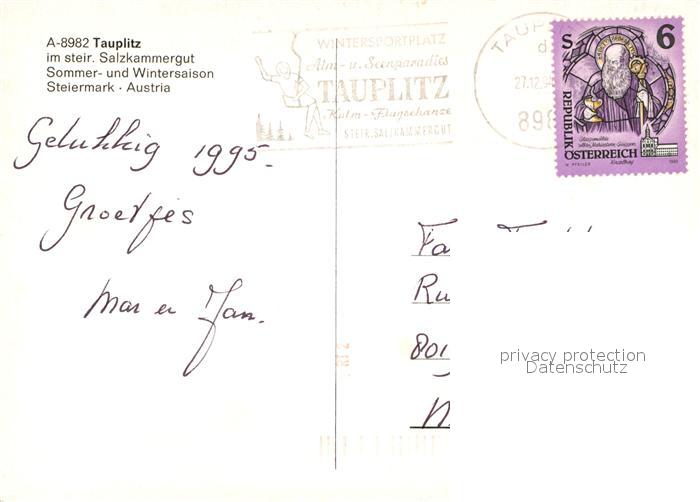 A-8982 Tauplitz
im steir. Salzkammergut
Sommer- und Wintersaison
Steiermark · Austria
WINTERSPORTPLATZ
Alm- u. Seenparadies
TAUPLITZ
Kulm-Flugschanze
STEIR. SALZKAMMERGUT
TAUP
d
27.12.94
898
S 6
REPUBLIK
ÖSTERREICH
Gelukkig 1995.
Groetjes
Mar en Jan.
Fa
Ru
801
privacy protection
Datenschutz